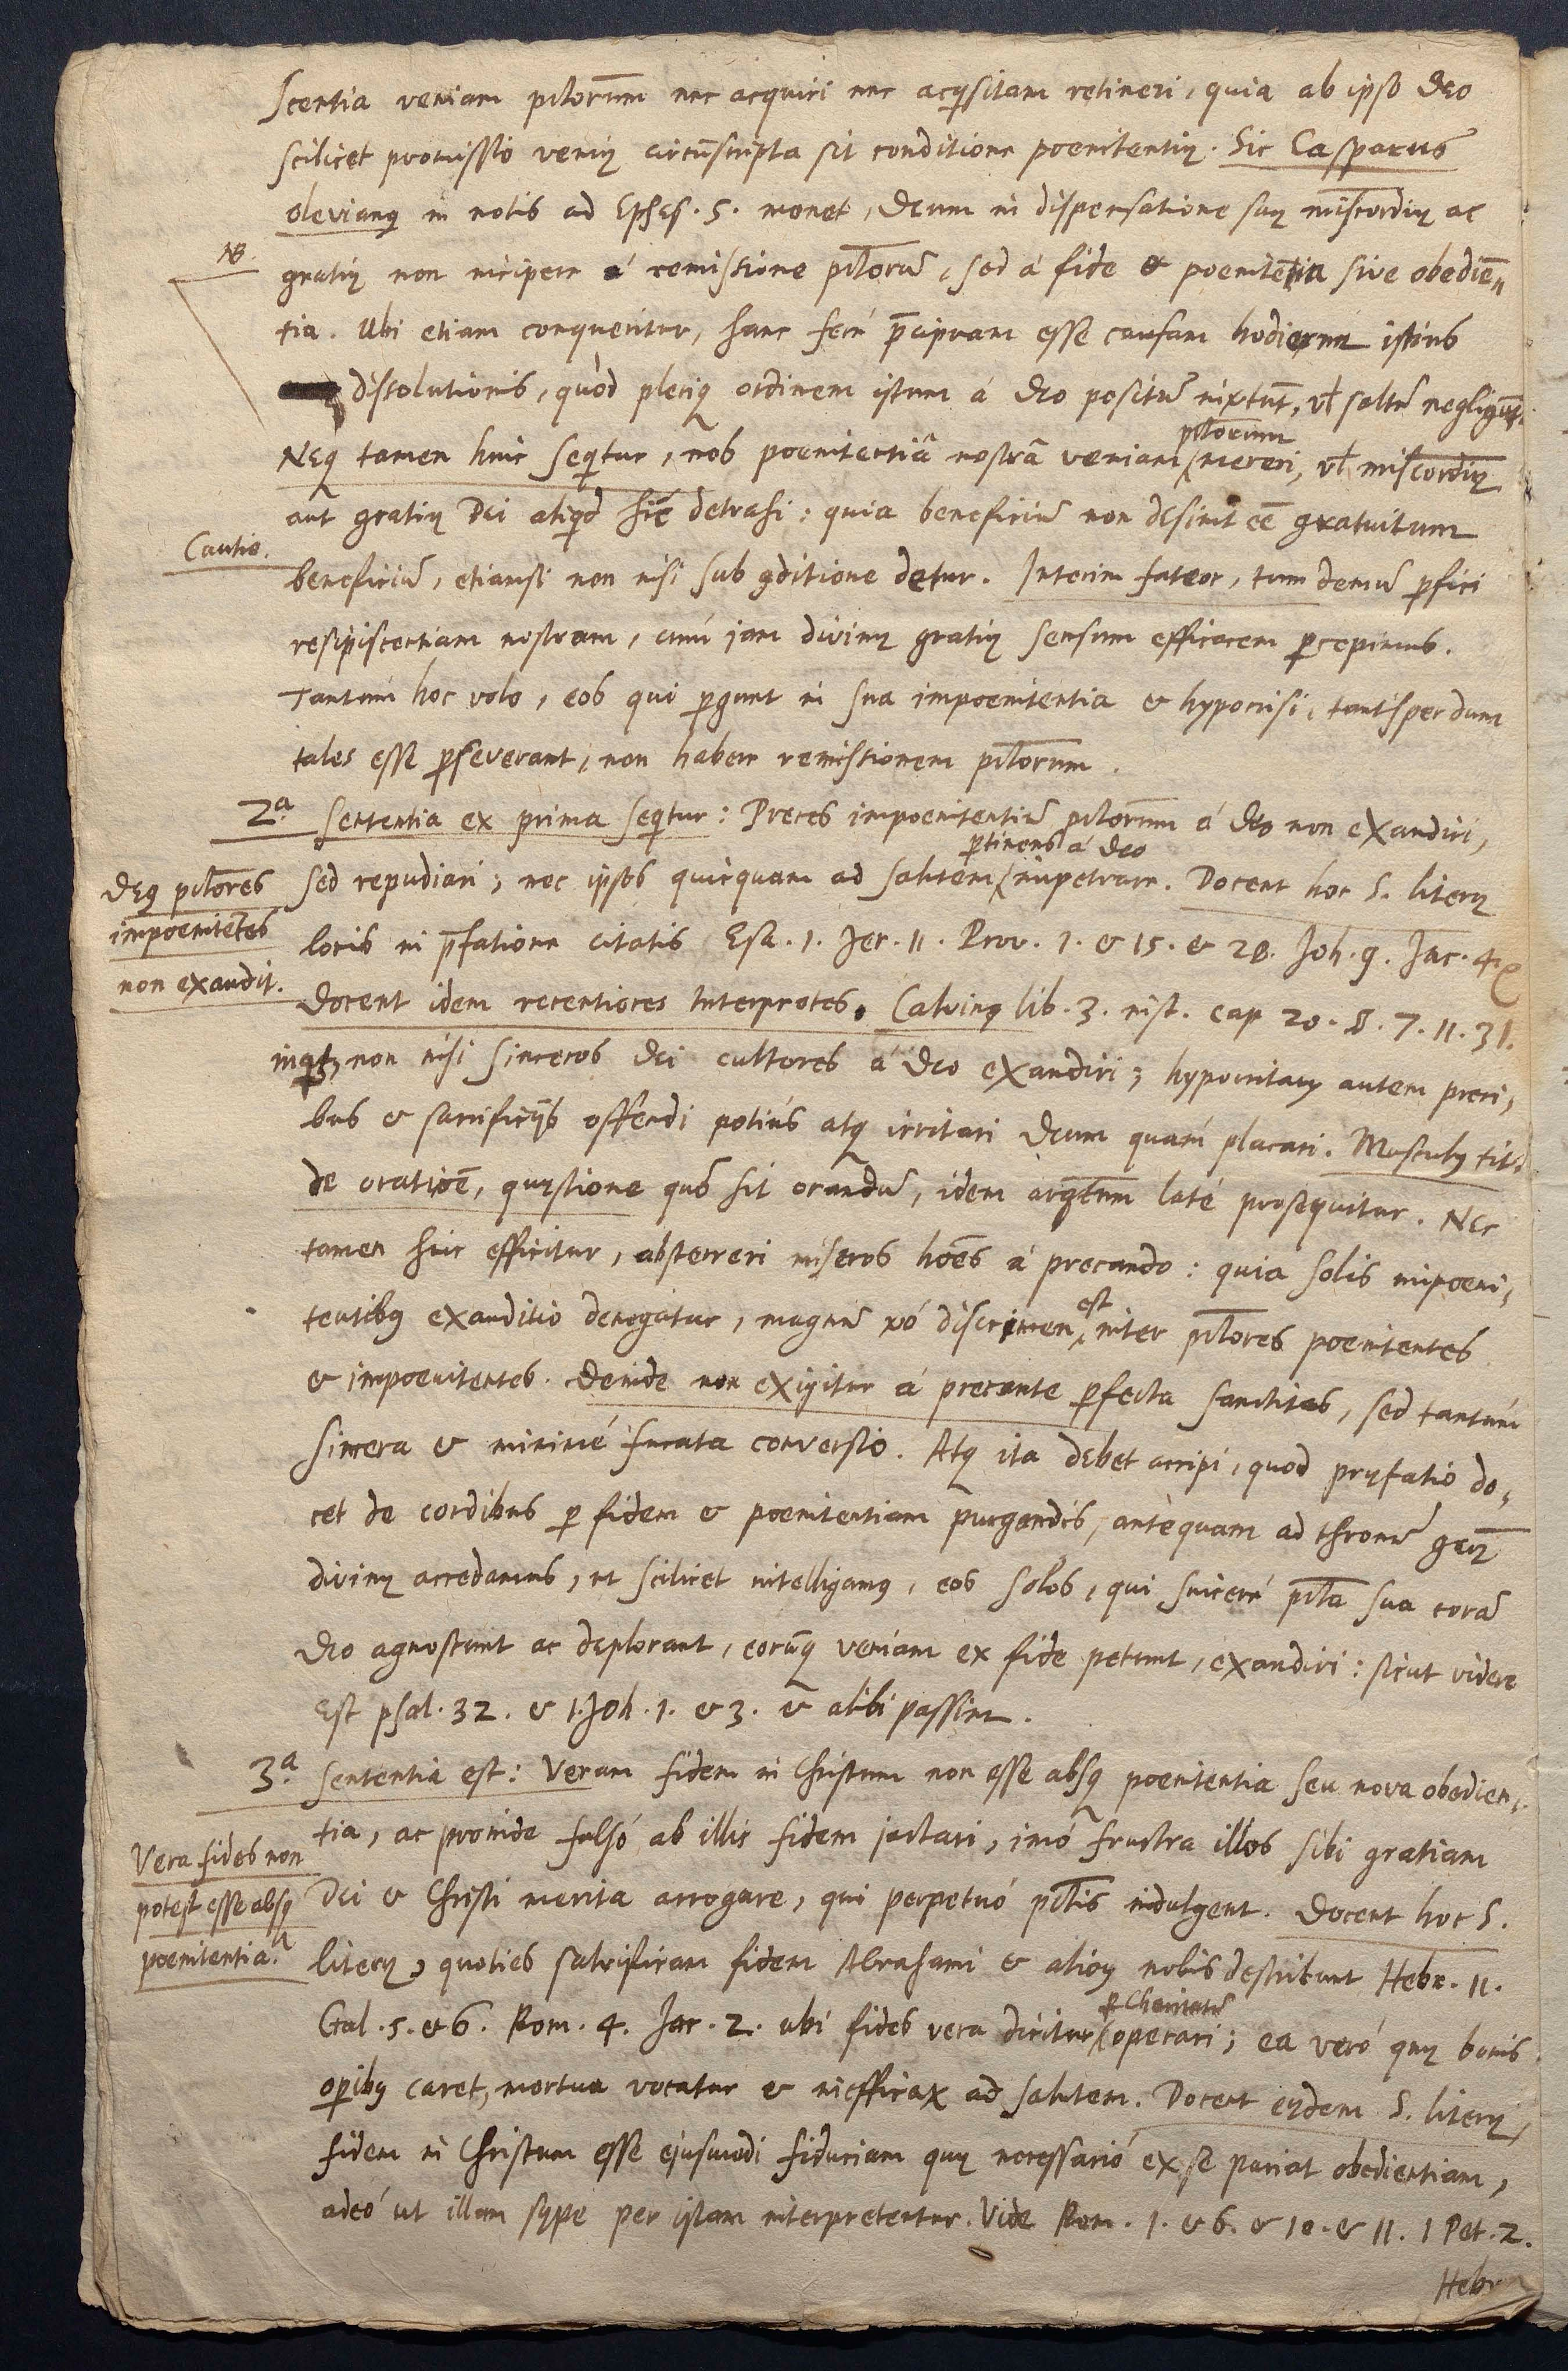 scentia veniam pc̅torum nec acquiri nec acqsitam retineri, quia ab ipso Deo
scilicet promissio veniæ circu̅scripta sit conditione poenitentiæ. Sic Casparus
Olevianq in notis ad Ephes. 5. monet, Deum in dispensatione suæ mi̅s̅cordiæ ac
NB.
gratiæ non incipere á remissione pc̅toru̅, sed á fide & poenitentia sive obedie̅„
tia. Ubi etiam conqueritur, hanc feré p̅cipuam esse causam hodiernæ istius
dissolutionis, quòd pleriq ordinem istum á Deo positu̅ , vł saltẽ negligũt.
Neq tamen hinc seqitur, nos poenitentiâ nostrâ veniam pc̅torum mereri, vł mi̅s̅cordiæ
aut gratiæ Dei aliqd hîc detrahi: quia beneficiũ non desinit ẽe gratuitum
Cautio.
beneficiũ, etiamsi non nisi sub 9ditione detur. Interim fateor, tum demũ pfici
resipiscentiam nostram, cùm jam divinæ gratiæ sensum efficacem pcepimus.
Tantùm hoc volo, eos qui pgunt in sua impoenitentia & hypocrisi, tantisper dum
tales esse pseverant, non habere remissionem pc̅torum.
2.ª Sententia ex prima seqitur: Preces impoenitentiũ pc̅torum á Deo non exaudiri,
Deq pc̅tores
impoenite̅tes
non exaudit.
sed repudiari; nec ipsos quicquam ad salutem ptinens á Deo impetrare. Docent hoc S. literæ
locis in p̅fatione citatis Esa. 1. Jer. 11. Prov. 1. & 15. & 28. Joh. 9. Jac. 4.
Docent idem recentiores Interpretes. Calvinq lib. 3. inst. cap 20. S. 7. 11. 31.
inqt, non nisi sinceros Dei cultores á Deo exaudiri; hypocritaꝝ autem preci„
bus & sacrificijs offendi potiús atq irritari Deum quàm placari. Musculq tit.
de oratio̅e, quæstione quõ sit orandũ, idem arg̅tum laté prosequitur. Nec
tamen hinc efficitur, absterreri miseros ho̅es á precando: quia solis impoeni„
tentibq exauditio denegatur, magnũ vó discrimen est inter pc̅tores poenitentes
& impoenitentes. Deinde non exigitur á precante pfecta sanctitas, sed tantùm
sincera & minimé fucata conversio. Atq ita debet accipi, quod præfatio do„
cet de cordibus p fidem & poenitentiam purgandis, antequam ad thronũ gr̅æ
divinæ accedamus, ut scilicet intelligamq, eos solos, qui sinceré pc̅ta sua corã
Deo agnoscunt ac deplorant, eorũq veniam ex fide petunt, exaudiri: sicut videre
est psal. 32. & 1. Joh. 1. & 3. & alibi passim.
3.ª Sententia est: Veram fidem in Christum non esse absq poenitentia seu nova obedien„
Vera fides non
potest esse absq
poenitentia.
tia, ac proinde falsó ab illis fidem jactari, imó frustra illos sibi gratiam
Dei & Christi merita arrogare, qui perpetuó pc̅tis indulgent. Docent hoc S.
literæ, quoties salvificam fidem Abrahami & alioꝝ nobis describunt Hebr. 11.
Gal. 5. & 6. Rom. 4. Jac. 2. ubi fides vera dicitur p Charitatẽ operari; ea veró quæ bonis
opibq caret, mortua vocatur & inefficax ad salutem. Docent eædem S. literæ,
fidem in Christum esse ejusmodi fiduciam quæ necessarió ex se pariat obedientiam,
adeó ut illam sæpe per istam interpretentur. Vide Rom. 1. & 6. & 10. & 11. 1 Pet. 2.
Hebr